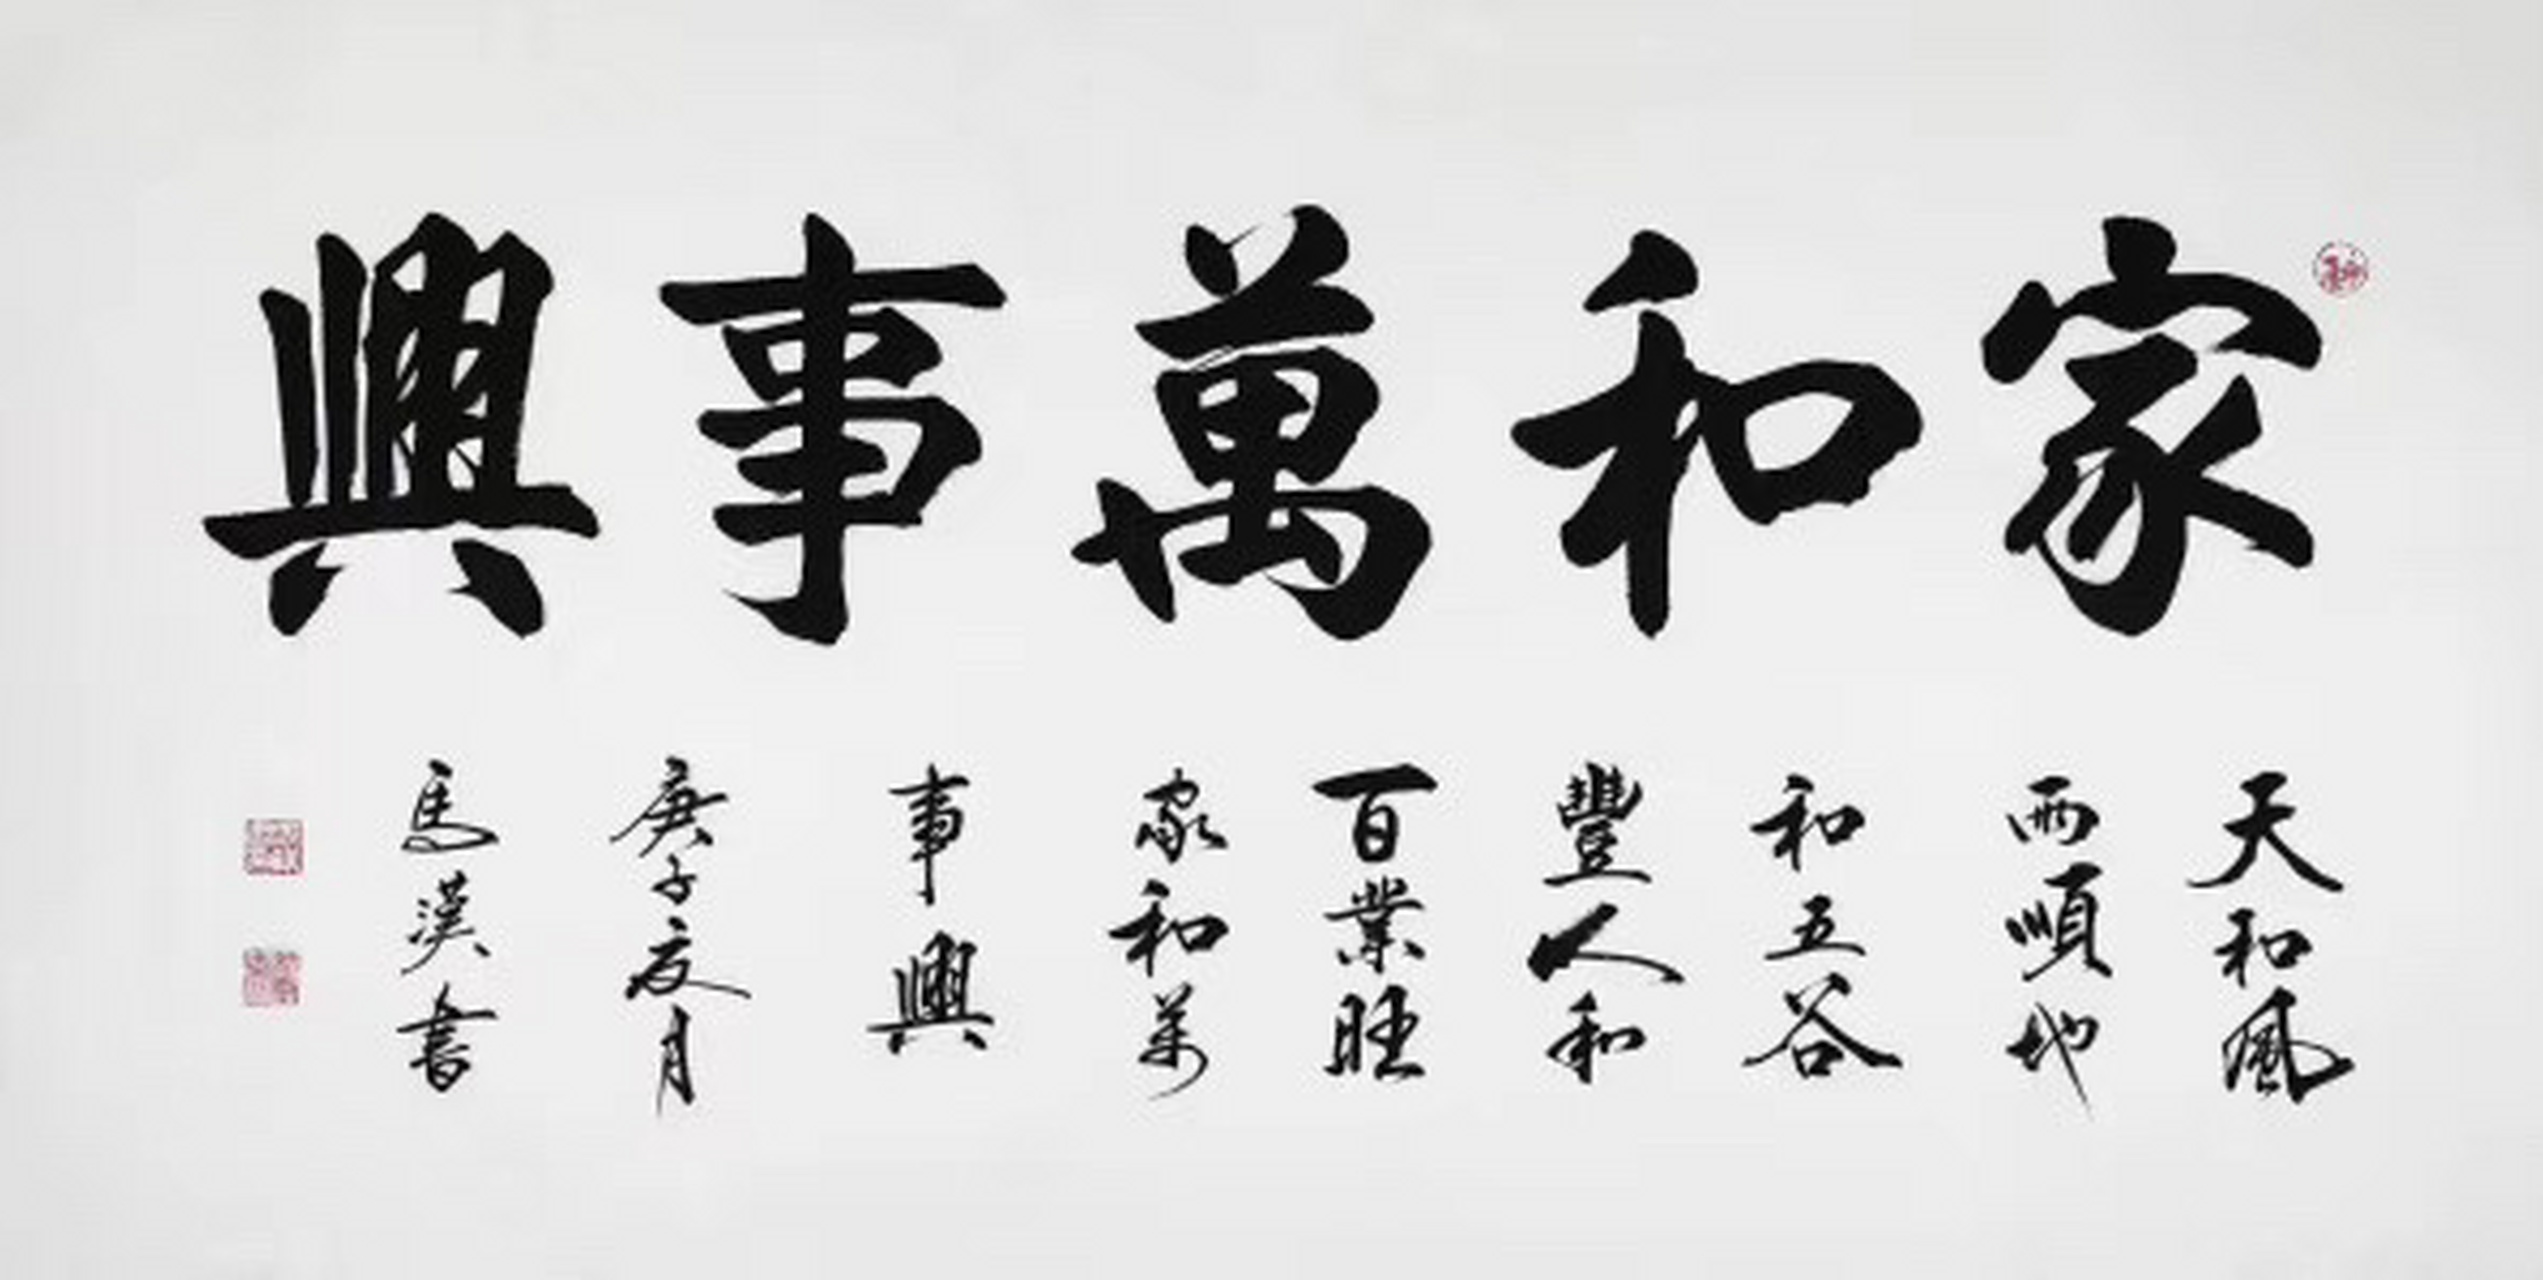 家和萬事興
天和風
雨順地
和五谷
豐人和
百業旺
家和万
事興
庚子夏月
馬漢書